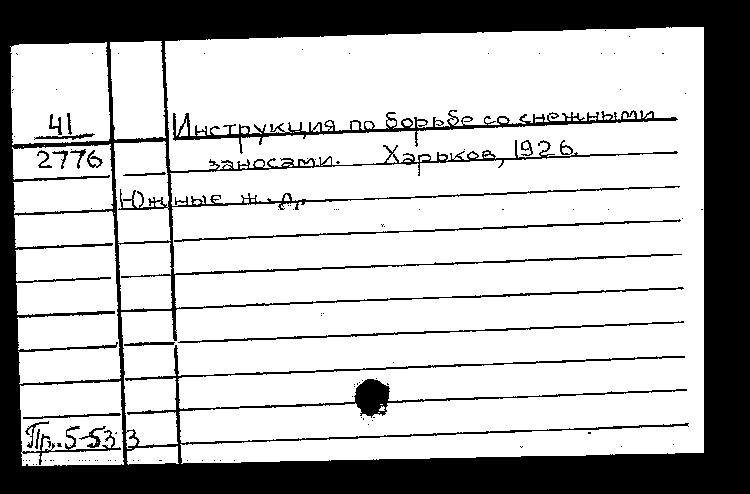 41
Инструкция по борьбе со снежными
2776
заносами. Харьков, 1926.
Южные ж. д.
Пр. 5-53